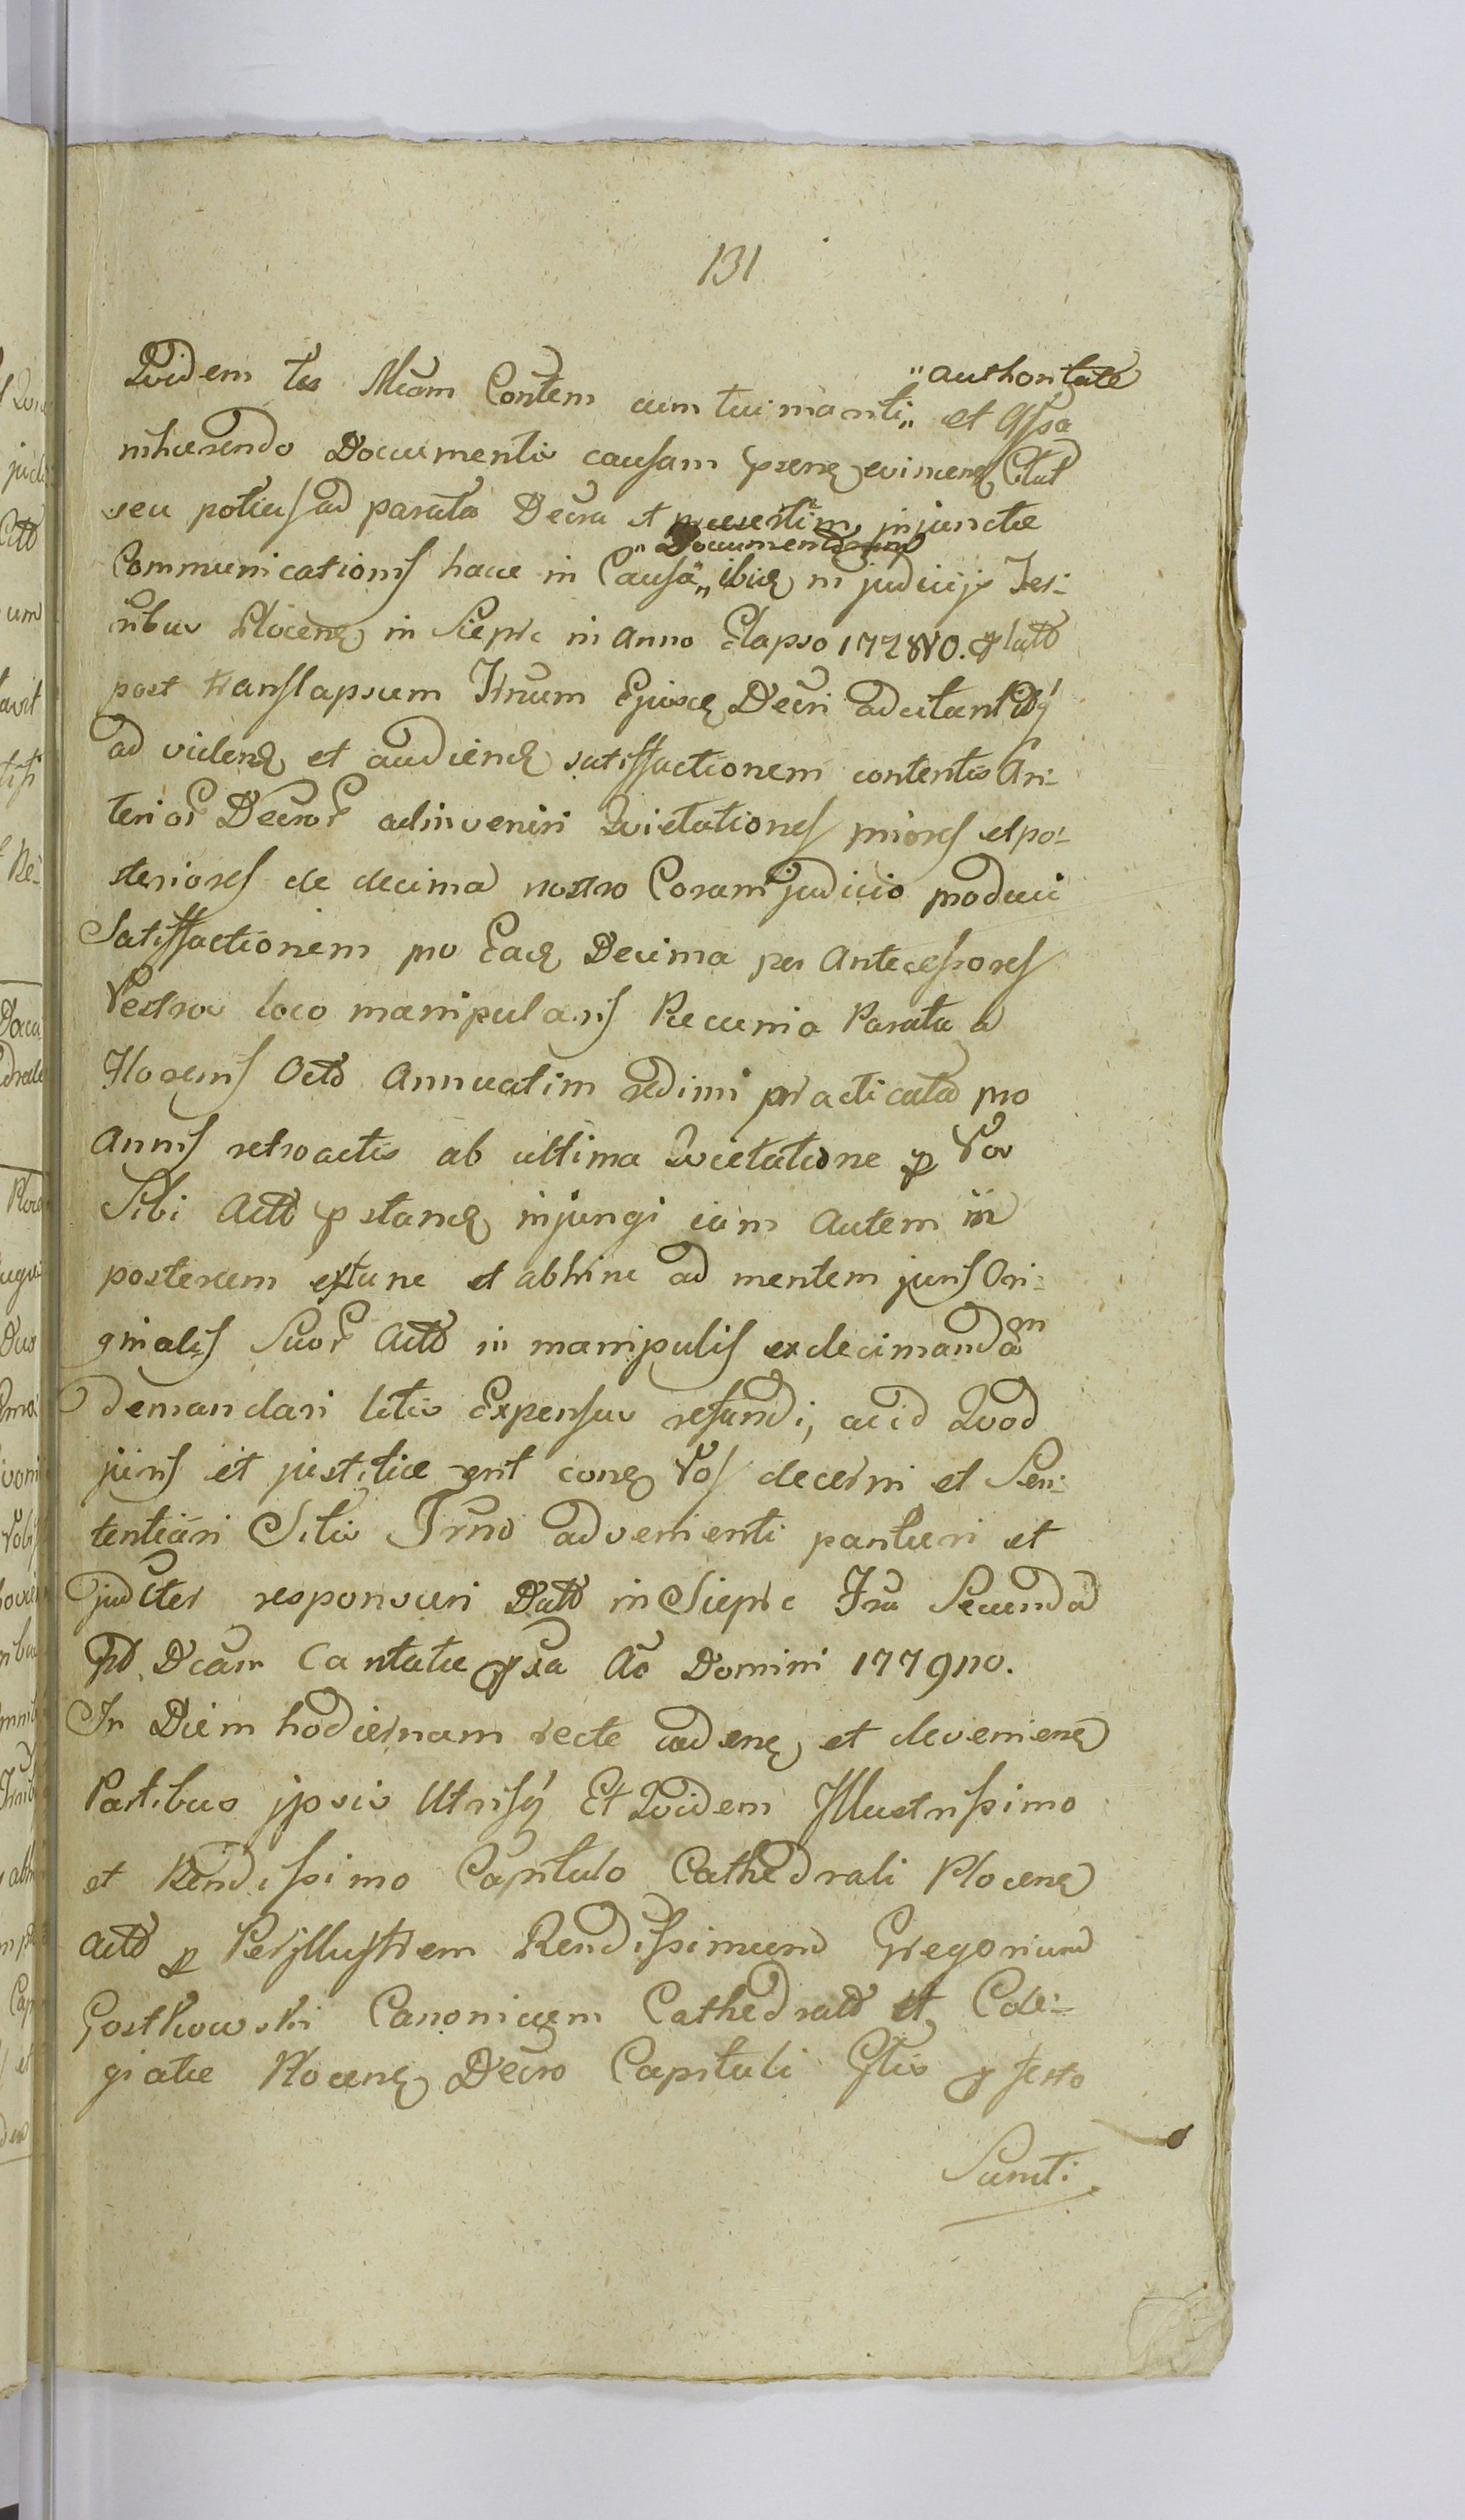 131
Quidem tes Micam Contem cum tui manti „ authoritate et Assa
inhaerendo Documentis causam praeng evinceng Citat
seu potius ad parata Decra et praesertim injunctae
Communicationis hacce in Causa „ Documentorum ibidq in judicijs Ter:
ribus Plocens in Sieprc in Anno Elapso 1778vo. p lato
post translapsum Trnum Ejusdq Decri adcitant Idq
ad videndq et audiendq satisfactionem contentis An:
terior Decror adinveniri Quietationes priores et po:
steriores de decima nostro Coram judicio produci
Satisfactionem pro Eadq Decima per Antecessores
Vestros loco manipularis Pecunia Parata a
Florenis Octo Annuatim redimi practicata pro
Annis retroactis ab ultima Quietatione p Vos
Sibi Actt pstandq injungi iam Autem in
posterum extunc et abhinc ad mentem juris Ori:
ginalis Suor Actt in manipulis exdecimandam
demandari litis Expensas refundi, ac id Quod
juris et justitiae erit conq Vos decerni et Sen:
tentiari Sitis Trno advenienti parituri et
judcter responsuri Datt in Sieprc Fra Secunda
pt Dcam Cantatae pxa Ao Domini 1779no.
In Diem hodiernam recte cadenq et devenienq
Partibus ipsis Utrisq Et Quidem Illustrissimo
et Rendissimo Capitulo Cathedrali Plocenq
Actt p Perillustrem Rendissimum Gregorium
Gostkowski Canonicum Cathedralt et Cole:
giatae Plocenq Decro Capituli Gtis p festo
Sancti: